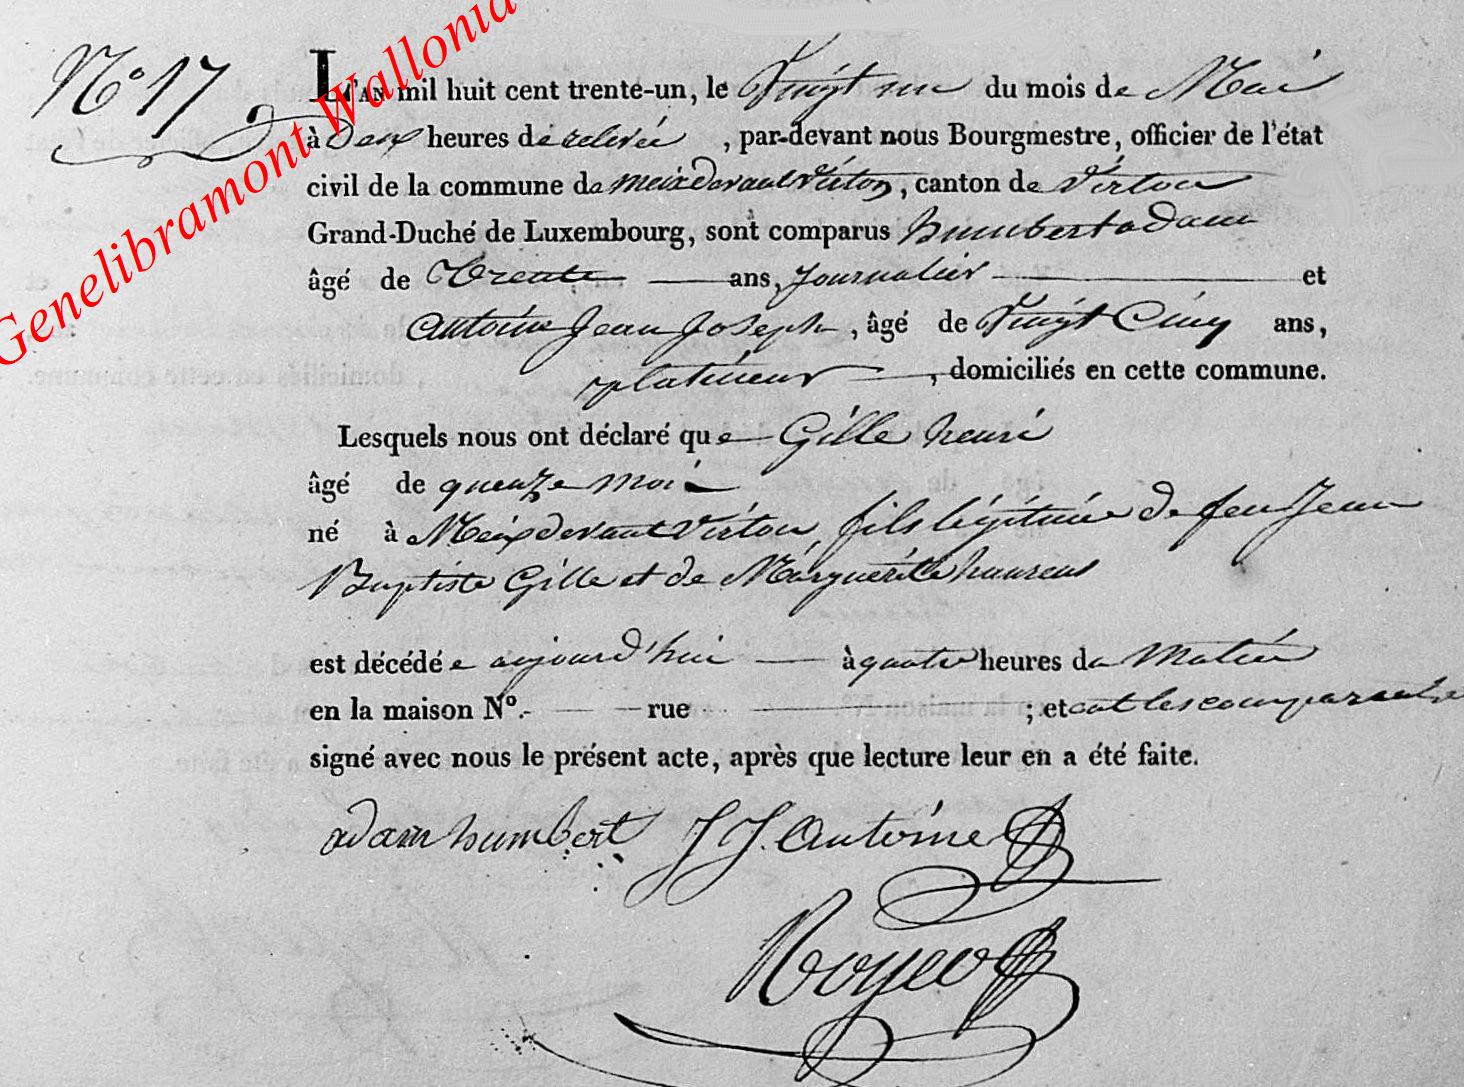 Genelibramont Wallonia
N° 17
L'AN mil huit cent trente-un, le Vingt un du mois de Mai
à Deux heures de relevée, par-devant nous Bourgmestre, officier de l'état
civil de la commune de meix devant Virton, canton de Virton
Grand-Duché de Luxembourg, sont comparus humbert adam
âgé de Trente ans, Journalier et
antoine Jean Joseph, âgé de Vingt Cinq ans,
platineur, domiciliés en cette commune.
Lesquels nous ont déclaré que Gille henri
âgé de queuze moi
né à Meix devant Virton, fils légitime de feu Jean
Baptiste Gille et de Marguerite
est décédé aujourd'hui à quatre heures du Matin
en la maison N°. rue ; et ont les comparants
signé avec nous le présent acte, après que lecture leur en a été faite.
adam humbert J J. Antoine